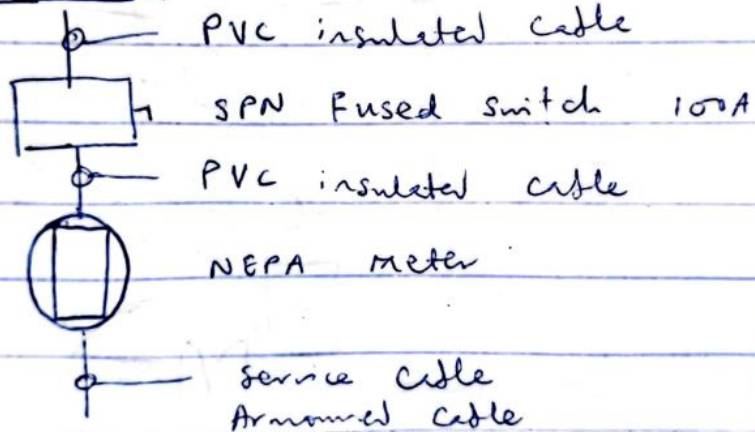 PVC insulated cable
SPN Fused switch 100A
PVC insulated cable
NEPA meter
service cable
Armoured cable